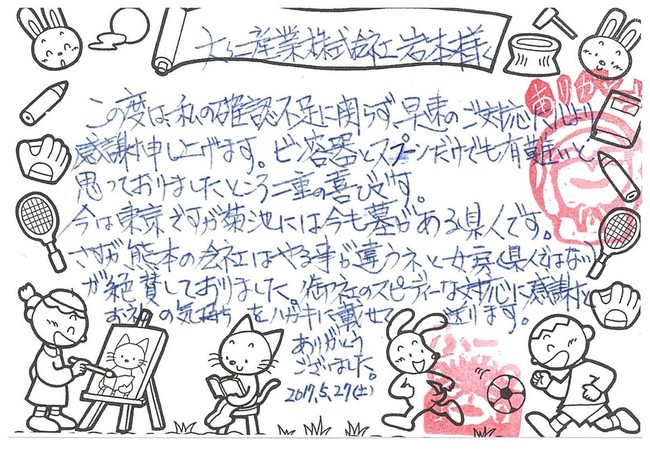 産業株式会社 岩本様
この度は、私の確認不足に関らず、早速のご対応心より
感謝申し上げます。ビン容器とスプーンだけでも有難いと
思っておりましたところ二重の喜びです。
今は東京ですが菊池には今も墓がある県人です。
さすが熊本の会社はやる事が違うネと女房(県人ではない)
が絶賛しておりました。御社のスピーディーな対応に感謝と
お礼の気持ちをハガキに載せて送ります。
ありがとう
ございました。
2017.5.27(土)
ありが